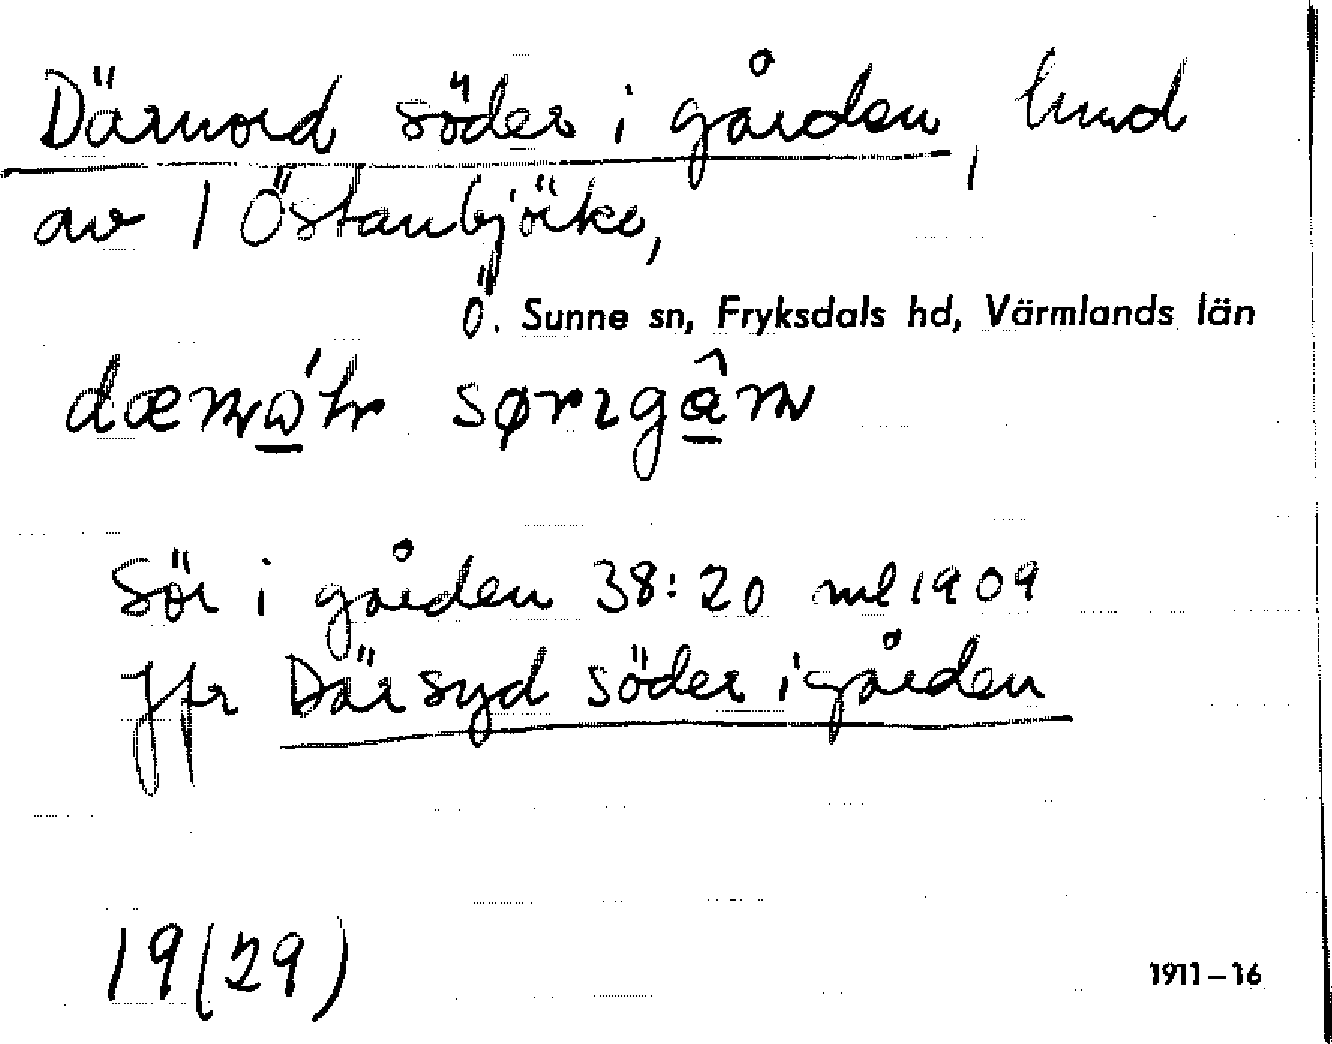 Därnord söder i gården, hmd
av 1 Östanbjörke,
Ö. Sunne sn, Fryksdals hd, Värmlands län
sørɩgân
Sör i gården 38:20 ml 1909
Jfr Där syd söder i gården
19(29)
1911–16